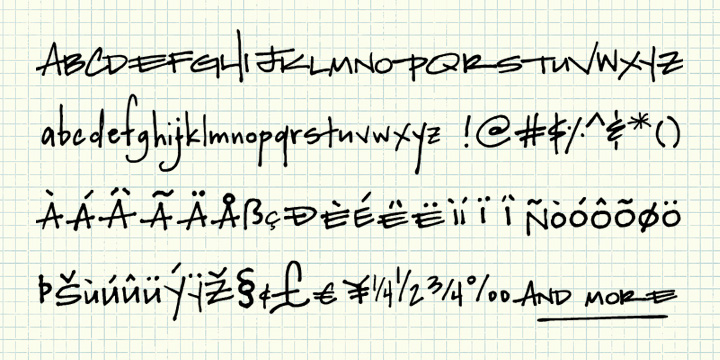 ABCDEFGHIJKLMNOPQRSTUVWXYZ
abcdefghijklmnopqrstuvwxyz !@#$%^&*()
ÀÁÂÃÄÅßçÐÈÉÊËìíïîÑòóôõøö
ÞŠùúûüÝŸŽ§¢£€¥¼½¾‰ AND MORE